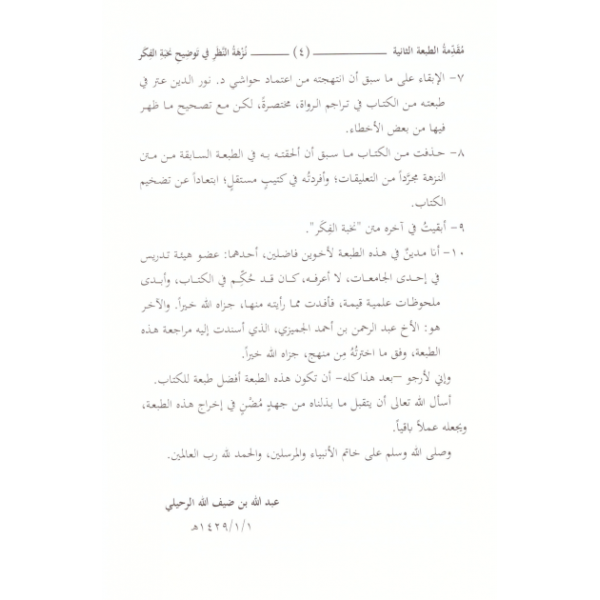 مُقَدِّمةُ الطبعة الثانية ــــــــــــــــ (٤) ــــــــــــــــ نُزْهَةُ النَّظَرِ في تَوضِيحِ نخبَةِ الفِكَر
٧- الإبقاء على ما سبق أن انتهجته من اعتماد حواشي د. نور الدين عتر في
طبعته من الكتاب في تراجم الرواة، مختصرةً، لكن مع تصحيح ما ظهر
فيها من بعض الأخطاء.
٨- حذفت من الكتاب ما سبق أن ألحقته به في الطبعة السابقة من متن
النزهة مجرَّداً من التعليقات؛ وأفردتُه في كتيبٍ مستقلٍ؛ ابتعاداً عن تضخيم
الكتاب.
٩- أبقيتُ في آخره متن "نخبة الفِكَر".
١٠- أنا مدينٌ في هذه الطبعة لأخوين فاضلين، أحدهما: عضو هيئة تدريس
في إحدى الجامعات، لا أعرفه، كان قد حُكِّم في الكتاب، وأبدى
ملحوظات علمية قيمة، فأفدت مما رأيته منها، جزاه الله خيراً. والآخر
هو: الأخ عبد الرحمن بن أحمد الجميزي، الذي أسندت إليه مراجعة هذه
الطبعة، وفق ما اخترتُهُ مِن منهج، جزاه الله خيراً.
وإني لأرجو –بعد هذا كله– أن تكون هذه الطبعة أفضل طبعة للكتاب.
أسأل الله تعالى أن يتقبل ما بذلناه من جهدٍ مُضْنٍ في إخراج هذه الطبعة،
ويجعله عملاً باقياً.
وصلى الله وسلم على خاتم الأنبياء والمرسلين، والحمد لله رب العالمين.
عبد الله بن ضيف الله الرحيلي
١/١/١٤٢٩هـ